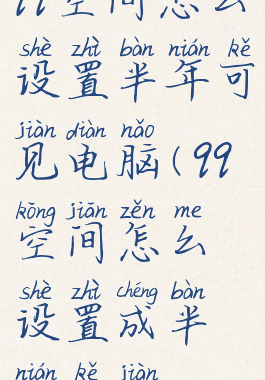 空间怎么
shè zhì bàn nián kě
设置半年可
jiàn diàn nǎo
见电脑(99
kōng jiān zěn me
空间怎么
shè zhì chéng bàn
设置成半
nián kě jiàn